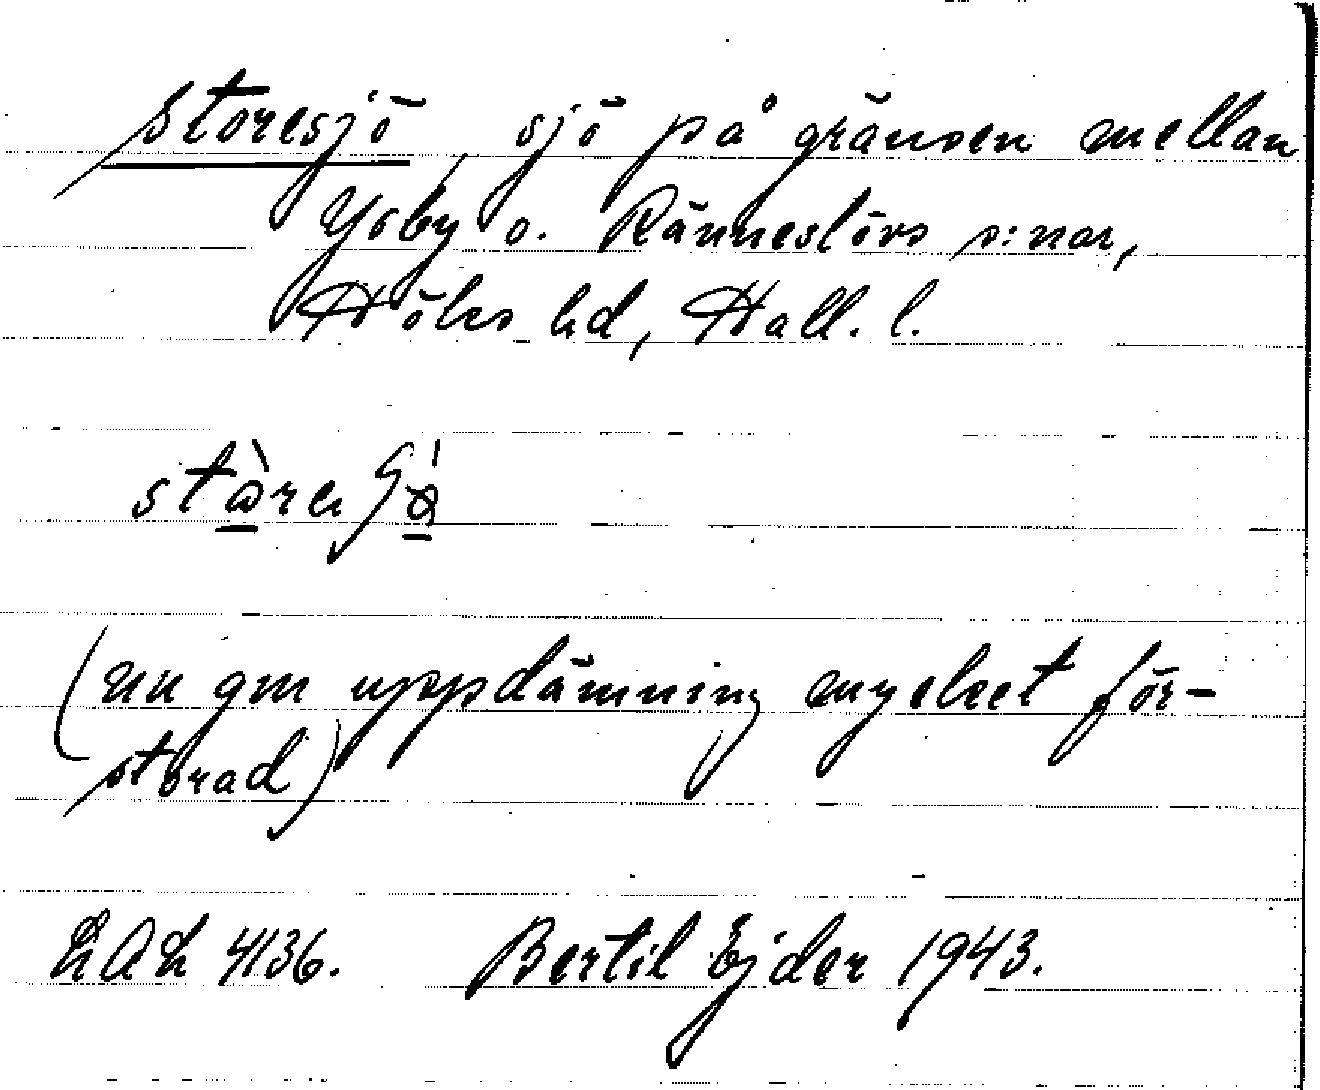 Storesjö, sjö på gränsen mellan
Ysby o. Ränneslövs s:nar,
Höks hd, Hall. l.
(nu gm uppdämning mycket för-
storad)
LAL 4136. Bertil Ejder 1943.